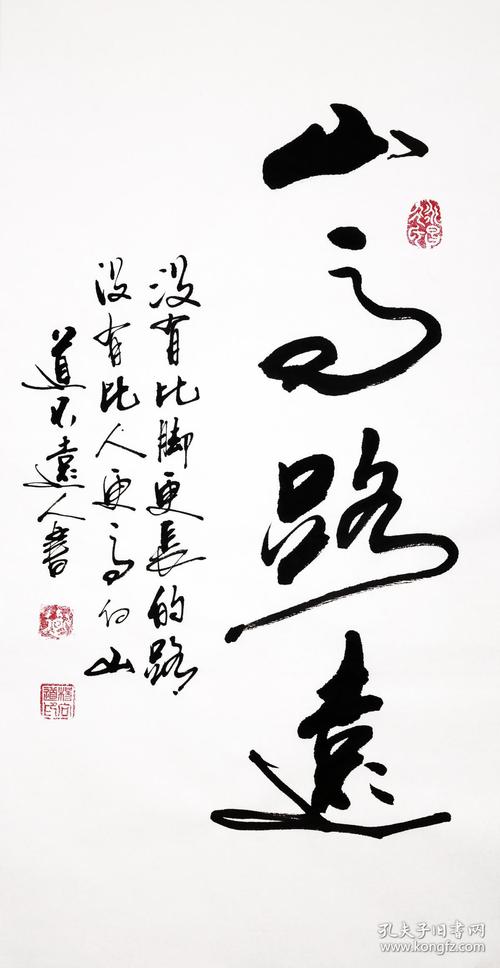 山高路遠
没有比脚更長的路，
没有比人更高的山
道不遠人書
孔夫子旧书网
www.kongfz.com